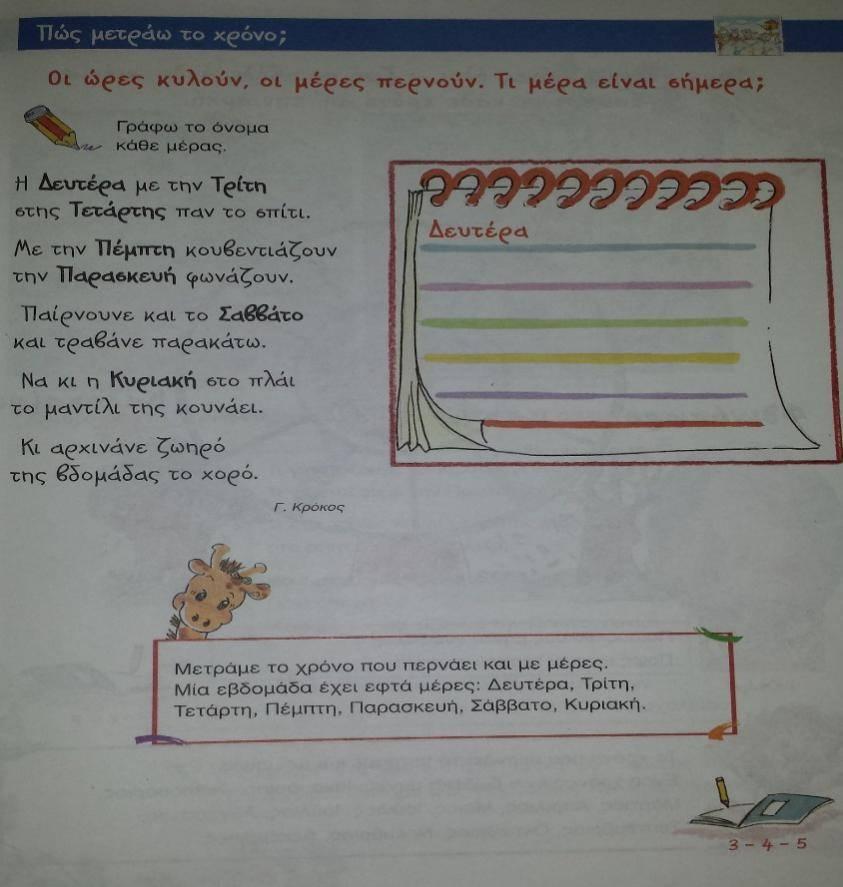 Πώς μετράω το χρόνο;
Οι ώρες κυλούν, οι μέρες περνούν. Τι μέρα είναι σήμερα;
Γράφω το όνομα
κάθε μέρας.
Η Δευτέρα με την Τρίτη
στης Τετάρτης παν το σπίτι.
Με την Πέμπτη κουβεντιάζουν
την Παρασκευή φωνάζουν.
Παίρνουνε και το Σαββάτο
και τραβάνε παρακάτω.
Να κι η Κυριακή στο πλάι
το μαντίλι της κουνάει.
Κι αρχινάνε ζωηρό
της βδομάδας το χορό.
Γ. Κρόκος
Δευτέρα
Μετράμε το χρόνο που περνάει και με μέρες.
Μία εβδομάδα έχει εφτά μέρες: Δευτέρα, Τρίτη,
Τετάρτη, Πέμπτη, Παρασκευή, Σάββατο, Κυριακή.
3 - 4 - 5